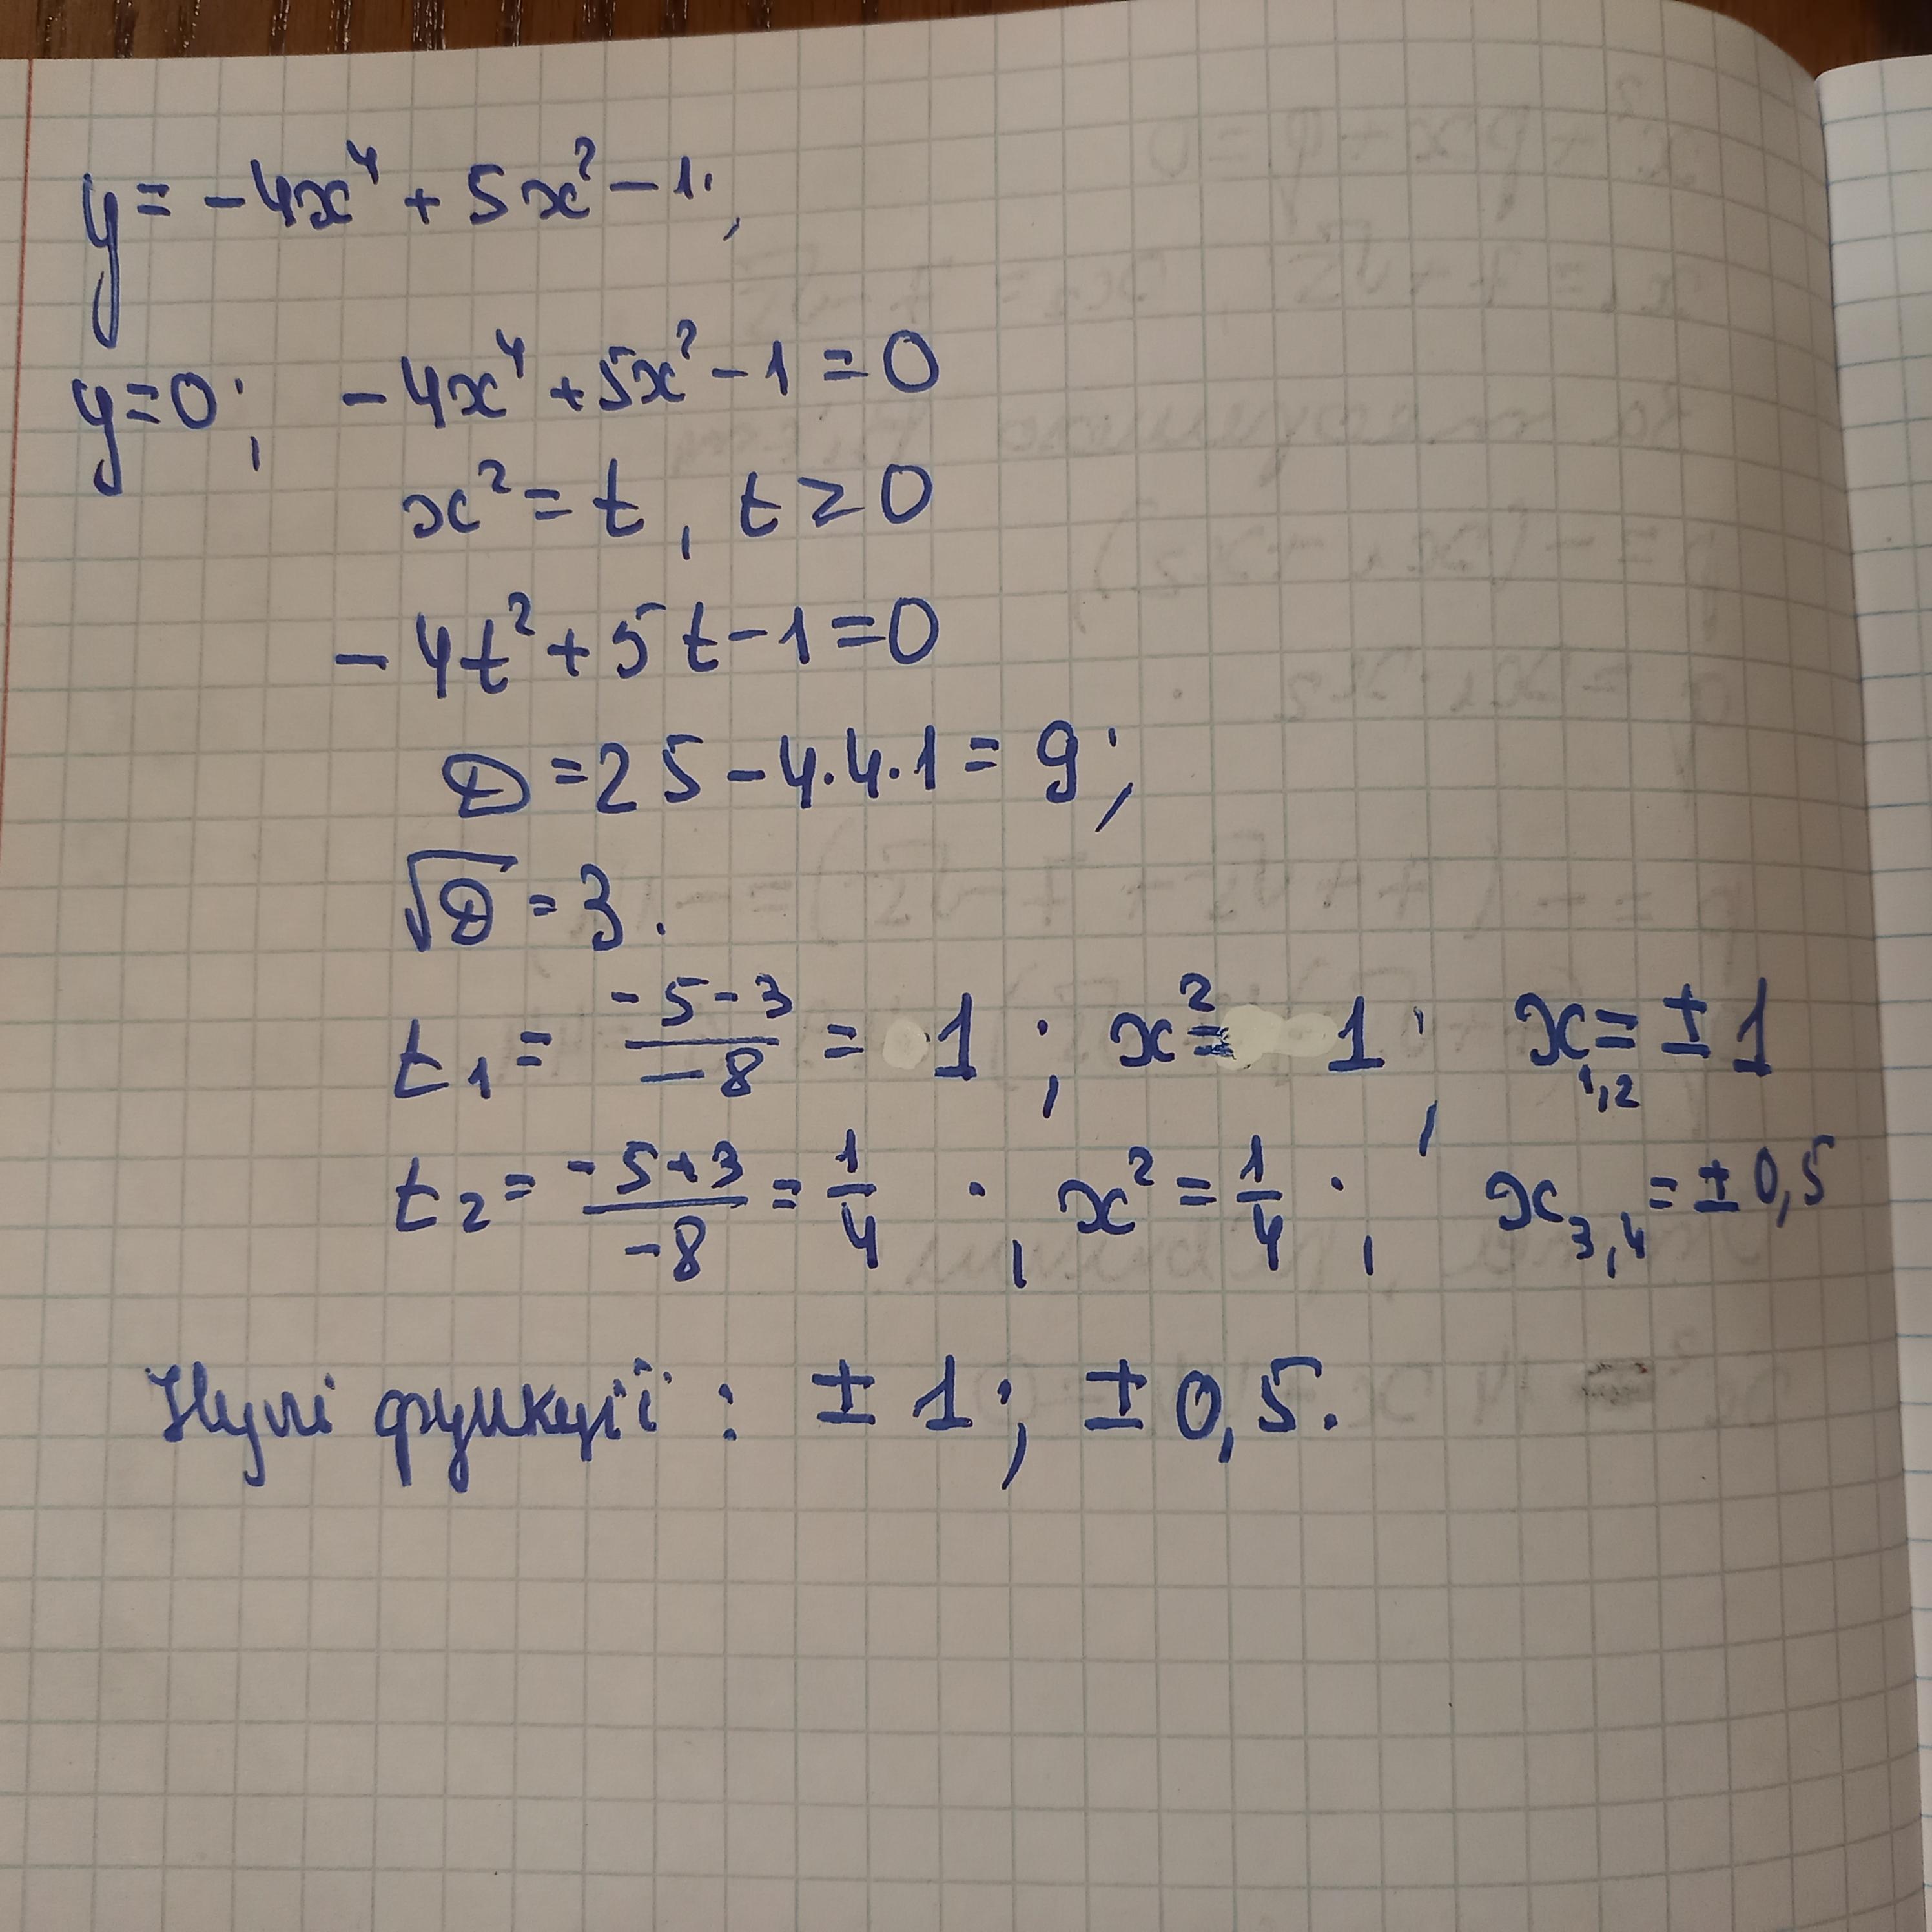 y = -4x⁴ + 5x² - 1;
y=0; -4x⁴ + 5x² - 1 = 0
x² = t, t ≥ 0
-4t² + 5t - 1 = 0
D = 25 - 4·4·1 = 9;
√D = 3.
t₁ = (-5-3)/(-8) = 1; x² = 1; x₁,₂ = ±1
t₂ = (-5+3)/(-8) = 1/4; x² = 1/4; x₃,₄ = ±0,5
Нулі функції: ±1; ±0,5.